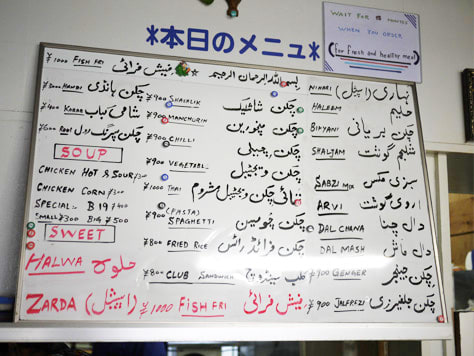 *本日のメニュー*
WAIT FOR 15 MINUTES
WHEN YOU ORDER
for fresh and healthy meal
¥1000 FISH FRI فیش فرائی
بسم الله الرحمان الرحيم
¥900 SHASLIK چکن شاشلیک
¥900 MANCHURIN چکن منچورین
¥900 CHILLI چکن چیلی
¥900 VEGETABLE چکن ویجیٹیبل
¥1000 THAI تھائی چکن ویجیٹیبل مشروم
¥900 (PASTA) SPAGHETTI چکن چومین
¥800 FRIED RICE چکن فرائڈ رائس
¥800 CLUB SANDWICH کلب سینڈوچ
HANDI چکن ہانڈی
¥400 KABAB شامی کباب
ROOL چکن سپرنگ رول
SOUP
CHICKEN HOT & SOUR 300
CHICKEN CORN ¥300
SPECIAL:- B 19 ¥400
SMALL ¥300 BIG ¥500
SWEET
HALWA حلوہ
ZARDA (اسپیشل) ¥1000 FISH FRI فیش فرائی
NIHARI (اسپیشل) نہاری
HALEEM حلیم
BIRYANI چکن بریانی
SHALJAM شلجم گوشت
SABZI MIX سبزی مکس
ARVI اروی گوشت
DAL CHANA دال چنا
DAL MASH دال ماش
¥900 GENGER چکن جنجر
¥900 JALFREZI چکن جلفریزی